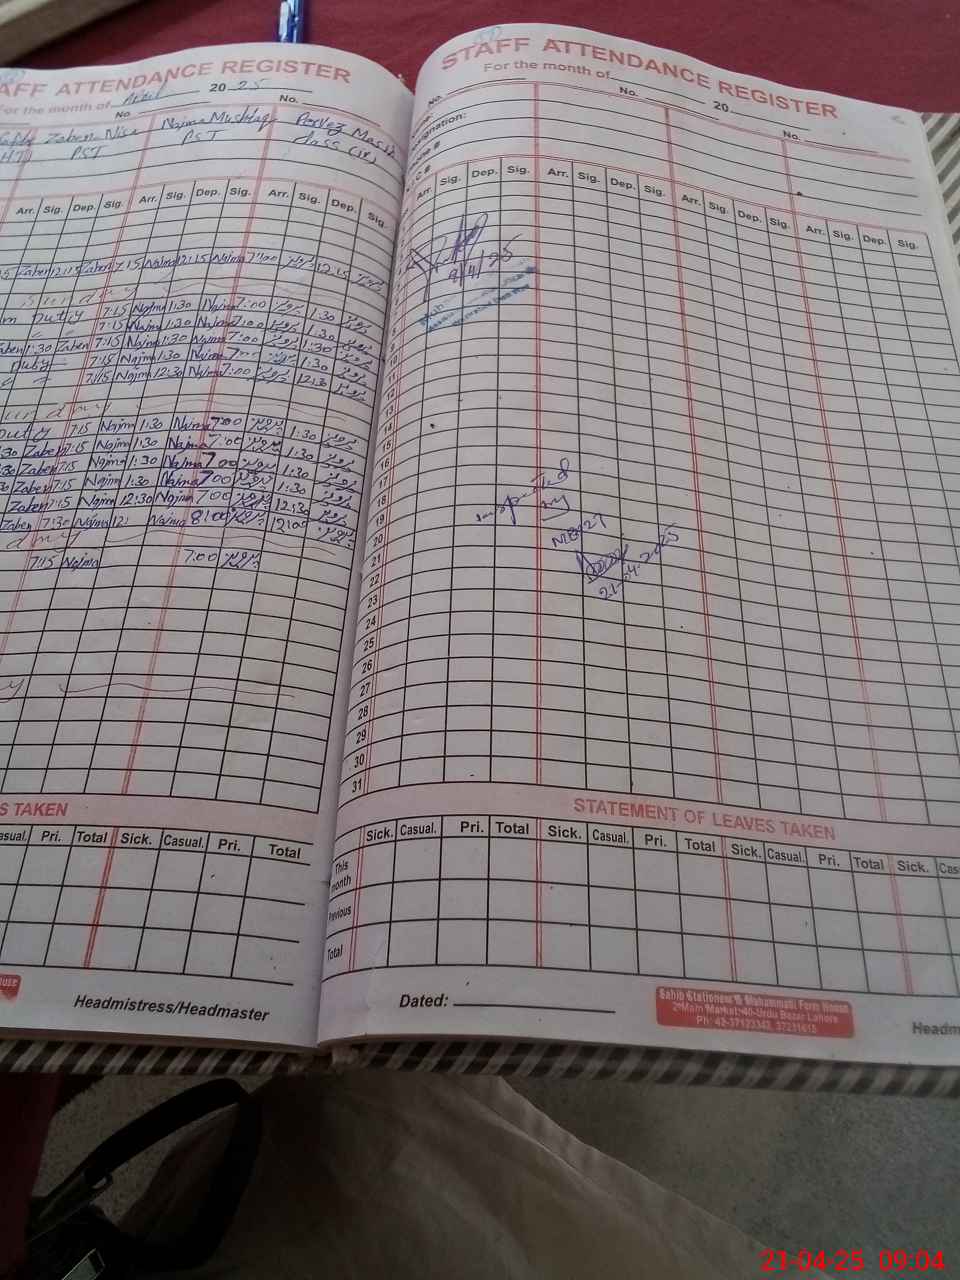 AFF ATTENDANCE REGISTER
For the month of April 20 25
No. No.
Zaben Nisa Najma Mushtaq Pervez Masih
HT) PST PST Class (iv)
Arr. Sig. Dep. Sig. Arr. Sig. Dep. Sig. Arr. Sig. Dep. Sig.
Zaben 12:15 Zaben 7:15 Najma 12:15 Najma 7:00 پرویز 12:15 پرویز
Sunday
Duty 7:15 Najma 1:30 Najma 7:00 پرویز 1:30 پرویز
7:15 Najma 1:30 Najma 7:00 پرویز 1:30 پرویز
Zaben 1:30 Zaben 7:15 Najma 1:30 Najma 7:00 پرویز 1:30 پرویز
Duty 7:15 Najma 1:30 Najma 7:00 پرویز 1:30 پرویز
7:15 Najma 12:30 Najma 7:00 پرویز 12:30 پرویز
Sunday
Duty 7:15 Najma 1:30 Najma 7:00 پرویز 1:30 پرویز
30 Zaben 7:15 Najma 1:30 Najma 7:00 پرویز 1:30 پرویز
30 Zaben 7:15 Najma 1:30 Najma 7:00 پرویز 1:30 پرویز
30 Zaben 7:15 Najma 1:30 Najma 7:00 پرویز 1:30 پرویز
Zaben 7:15 Najma 12:30 Najma 7:00 پرویز 12:30 پرویز
Zaben 7:30 Najma Najma 8:00 پرویز 12:00 پرویز
7:15 Najma 7:00 پرویز
S TAKEN
asual. Pri. Total Sick. Casual. Pri. Total
Headmistress/Headmaster
STAFF ATTENDANCE REGISTER
For the month of 20
No. No. No.
signation:
Arr. Sig. Dep. Sig. Arr. Sig. Dep. Sig. Arr. Sig. Dep. Sig. Arr. Sig. Dep. Sig.
8
9
10
11
12
13
14
15
16
17
18
19
20
21
22
23
24
25
26
27
28
29
30
31
9/4/25
inspected
by
MEA27
21-04-2025
STATEMENT OF LEAVES TAKEN
Sick. Casual. Pri. Total Sick. Casual. Pri. Total Sick. Casual. Pri. Total Sick. Cas
This month
Previous
Total
Dated:
Sahib Stationers & Muhammadi Form House
2nd Main Market 40-Urdu Bazar Lahore
Ph: 42-37123343, 37231615
Headm
21-04-25 09:04